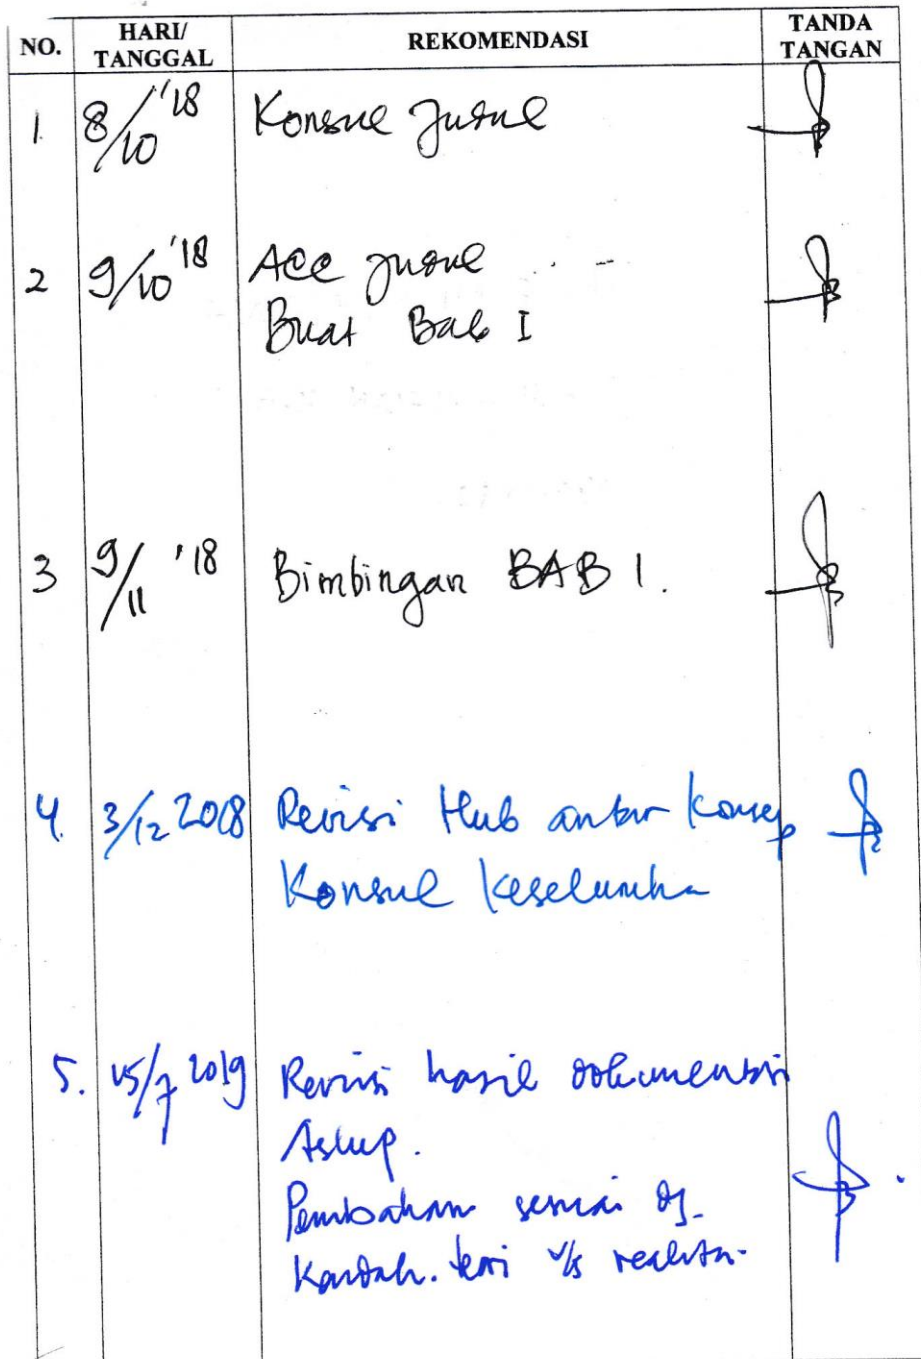 NO. HARI/ TANGGAL REKOMENDASI TANDA TANGAN
1. 8/10 '18 Konsul Judul
2 9/10 '18 Acc Judul
Buat Bab I
3 9/11 '18 Bimbingan BAB 1.
4. 3/12 2018 Revisi Hub antar Konsep
Konsul Keseluruha
5. 15/7 2019 Revisi hasil dokumentasi
Askep.
Pembahasan sesuai dg
teori v/s realita.